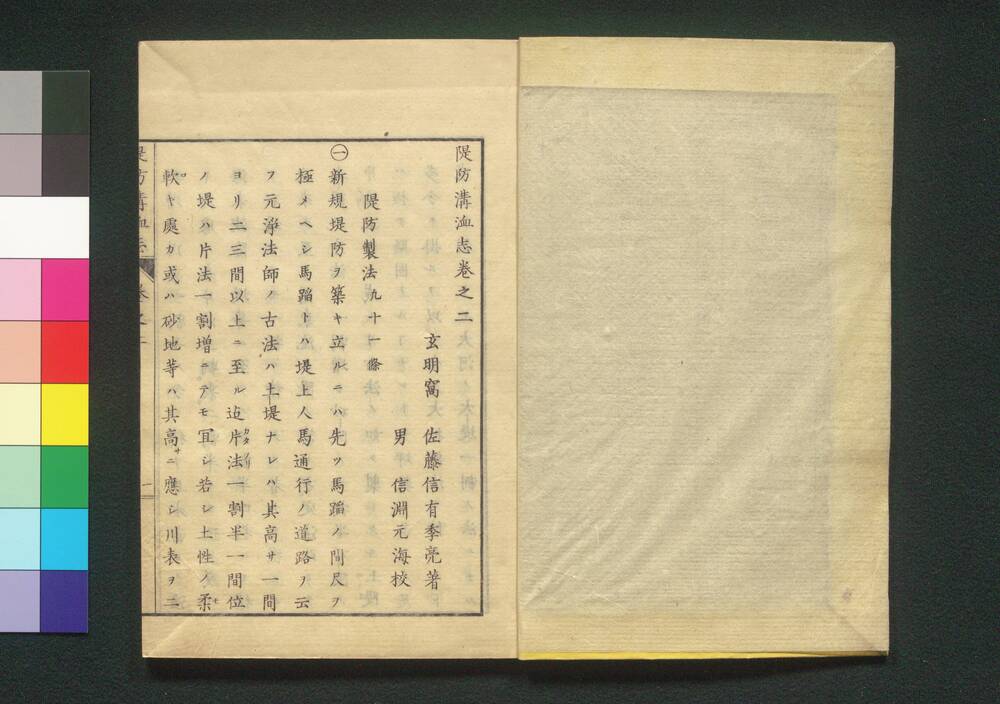 隄防溝洫志巻之二
玄明窩 佐藤信有季亮著
男 信淵元海挍
隄防製法九十一條
㊀新規堤防ヲ築キ立ルニハ先ツ馬蹈ノ間尺ヲ
極メヘシ馬蹈トハ堤上人馬通行ノ道路ヲ云
フ元淨法師ノ古法ハ土堤ナレハ其高サ一間
ヨリ二三間以上ニ至ル迠片法一割半一間位
ノ堤ハ片法一割増ニテモ冝シ若シ土性ノ柔
軟ヤ處カ或ハ砂地等ハ其高サニ應シ川表ヲ二
隄防溝洫志 巻之二 一